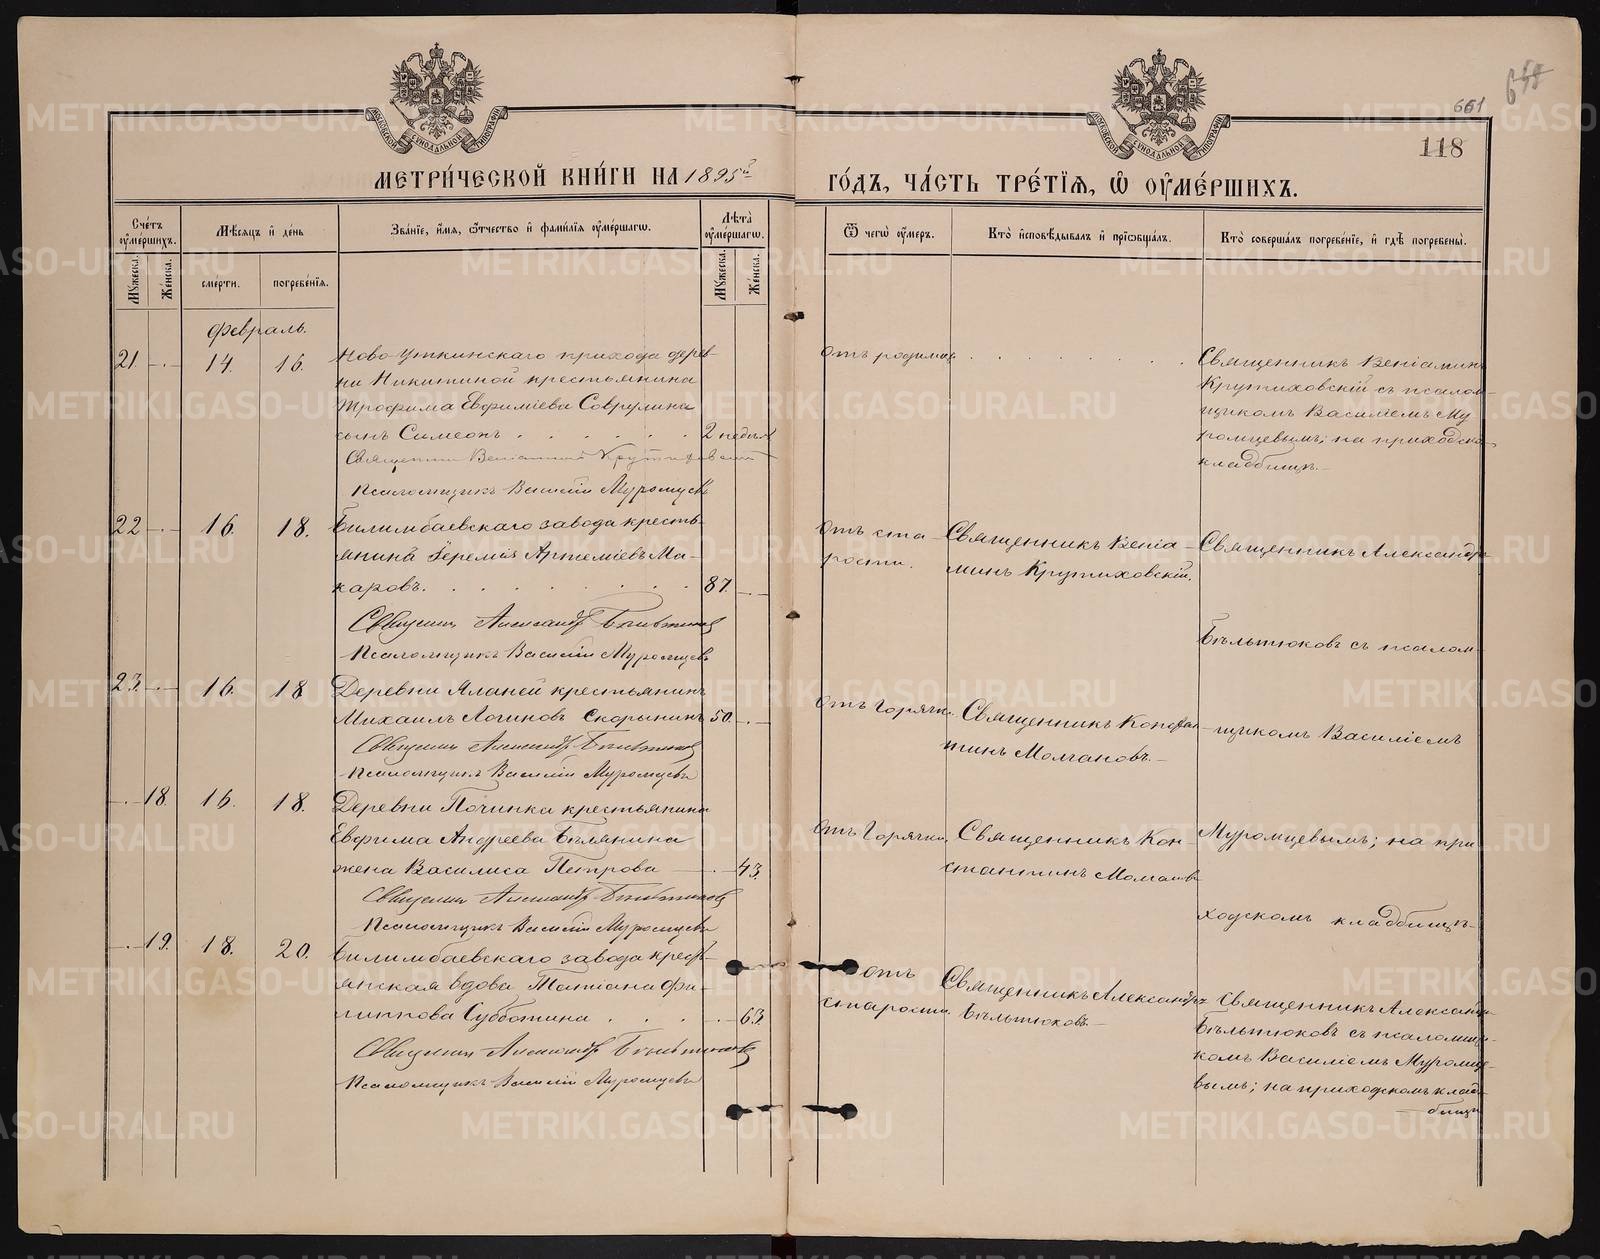 661
118
МЕТРИ́ЧЕСКОЙ КНИ́ГИ НА 1895й
ГО́ДЪ, ЧА́СТЬ ТРЕ́ТIѦ, Ѿ ОУМЕ́РШИХЪ.
Сче́тъ оуме́ршихъ.
Мужеска.
Женска.
Мѣсѧцъ и҆ де́нь
сме́рти.
погребе́нїѧ.
Зва́нїе, и҆́мѧ, ѻ҆́тчество и҆ фами́лїѧ оуме́ршагѡ.
Лѣ́та оуме́ршагѡ.
Мужеска.
Женска.
Ѿ чегѡ̀ оу́меръ.
Кто̀ и҆сповѣ́дывалъ и҆ прїѡбща́лъ.
Кто̀ соверша́лъ погребе́нїе, и҆ гдѣ̀ погребены̀.
Февраль.
21 - 14. 16.
Ново-Уткинскаго прихода дерев-
ни Никитиной крестьянина
Трофима Евфиміева Соврулина
сынъ Симеонъ . . . . . . 2 недѣль
Священникъ Веніаминъ Крутиховскій
Псаломщикъ Василій Муромцевъ
Отъ родимца
Священникъ Веніаминъ
Крутиховскій съ псалом-
щикомъ Василіемъ Му
ромцевымъ; на приходско
кладбищѣ.
22 - 16. 18.
Билимбаевскаго завода кресть-
янинъ Іеремія Артеміевъ Ма-
каровъ. . . . . . . . 87. -
Священникъ Александръ Бѣльтюковъ
Псаломщикъ Василій Муромцевъ
Отъ ста-
рости.
Священникъ Веніа-
минъ Крутиховскій.
Священникъ Александръ
Бѣльтюковъ съ псалом-
23. - 16. 18
Деревни Яланей крестьянинъ
Михаилъ Логиновъ Скорынинъ 50. -
Священникъ Александръ Бѣльтюковъ
Псаломщикъ Василій Муромцевъ
Отъ Горячки.
Священникъ Констан-
тинъ Молчановъ.
щикомъ Василіемъ
- 18. 16. 18.
Деревни Починка крестьянина
Евфима Андреева Бѣлянина
жена Василиса Петрова - 43.
Священникъ Александръ Бѣльтюковъ
Псаломщикъ Василій Муромцевъ
Отъ Горячки.
Священникъ Кон
стантинъ Молчановъ
Муромцевымъ; на при-
ходскомъ кладбищѣ.
- 19. 18. 20.
Билимбаевскаго завода кресть-
янская вдова Татіана Фи-
липпова Субботина . . . . - 63.
Священникъ Александръ Бѣльтюковъ
Псаломщикъ Василій Муромцевъ
отъ
старости.
Священникъ Александръ
Бѣльтюковъ.
Священникъ Александръ
Бѣльтюковъ съ псаломщи-
комъ Василіемъ Муромце-
вымъ; на приходскомъ клад-
бищѣ
METRIKI.GASO-URAL.RU